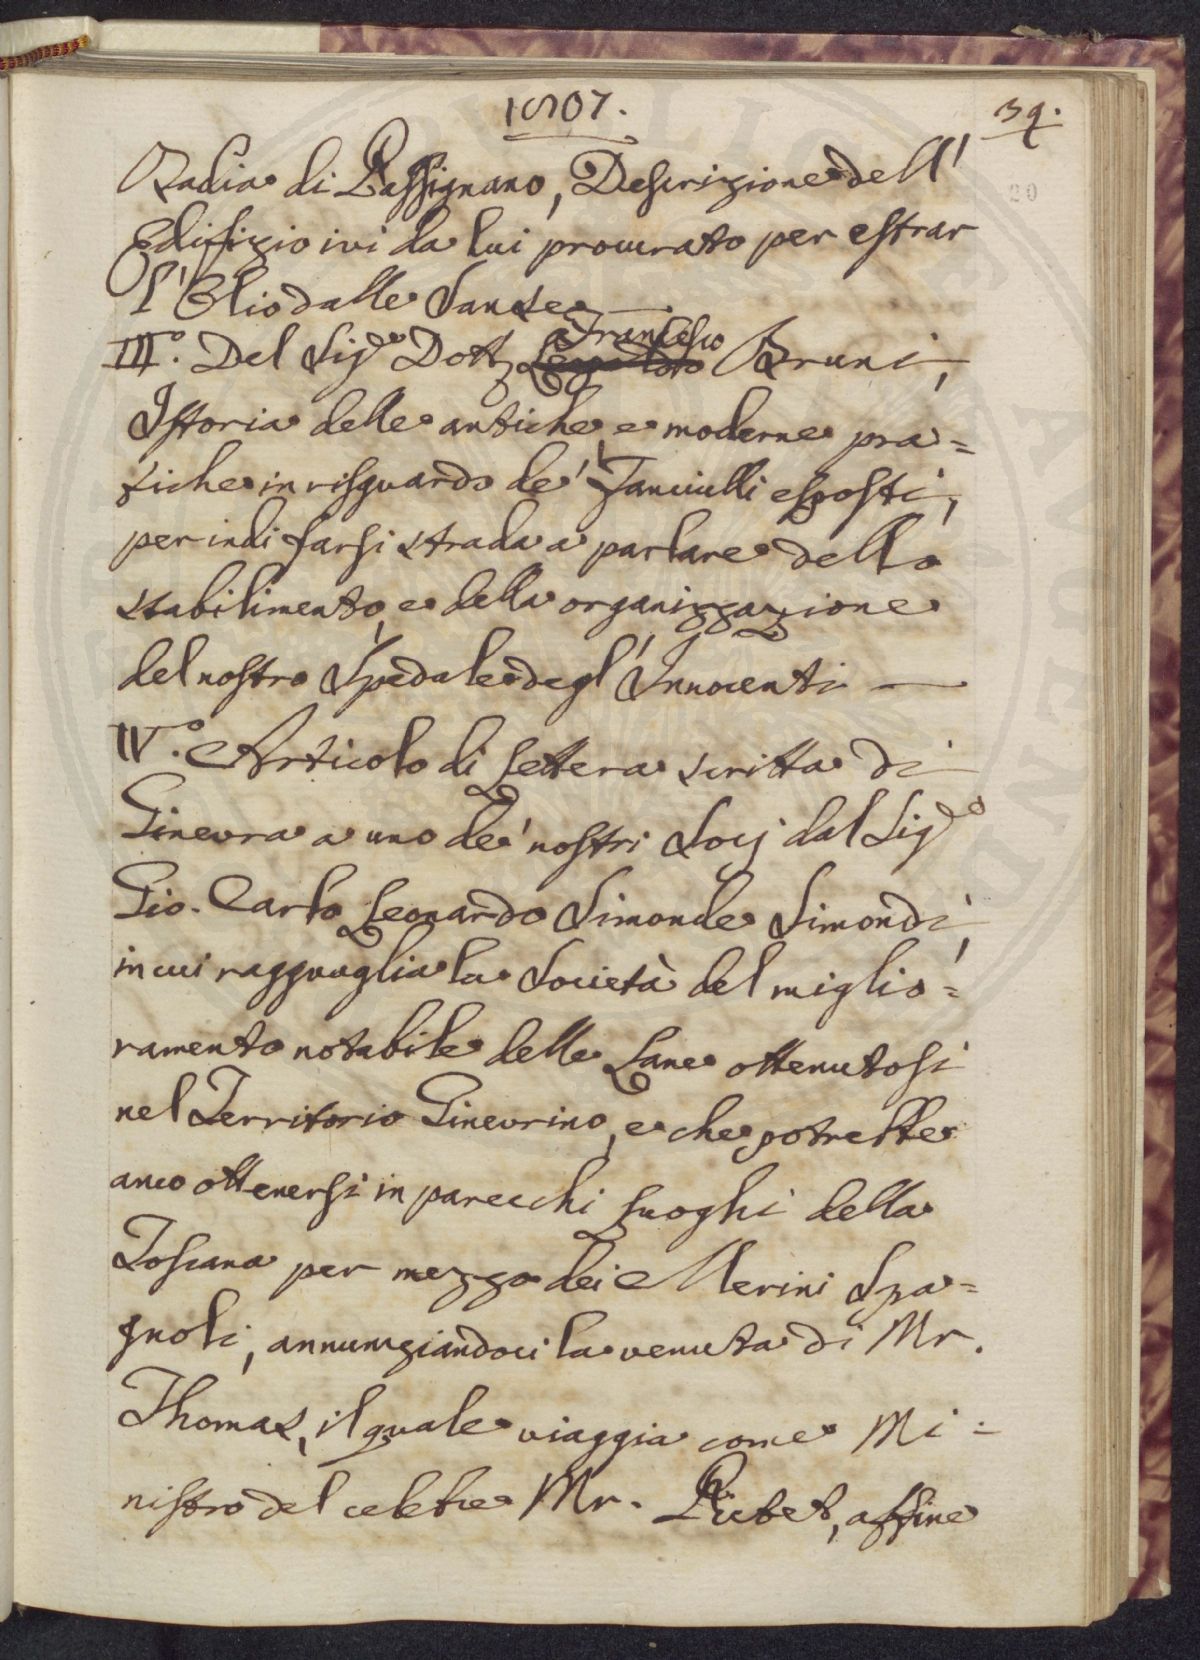 1807.
39.
20
Badia di Passignano, Descrizione dell'
Edifizio ivi da lui procurato per estrar
l'Olio dalle Sanse —
III.° Del Sig.r Dott. Francesco Bruni,
Istoria delle antiche, e moderne pra=
tiche in risguardo de' Fanciulli esposti,
per indi farsi strada a parlare dello
stabilimento, e della organizzazione
del nostro Spedale degl'Innocenti —
IV.° Articolo di Lettera scritta di
Ginevra a uno de' nostri Socj dal Sig.r
Gio. Carlo Leonardo Simonde Simondi,
in cui ragguaglia la Società del miglio=
ramento notabile delle Lane ottenutosi
nel Territorio Ginevrino, e che potrebbe
anco ottenersi in parecchi Luoghi della
Toscana per mezzo dei Merini Spa=
gnoli, annunziandoci la venuta di Mr.
Thomas, il quale viaggia come Mi=
nistro del celebre Mr. Pictet, affine